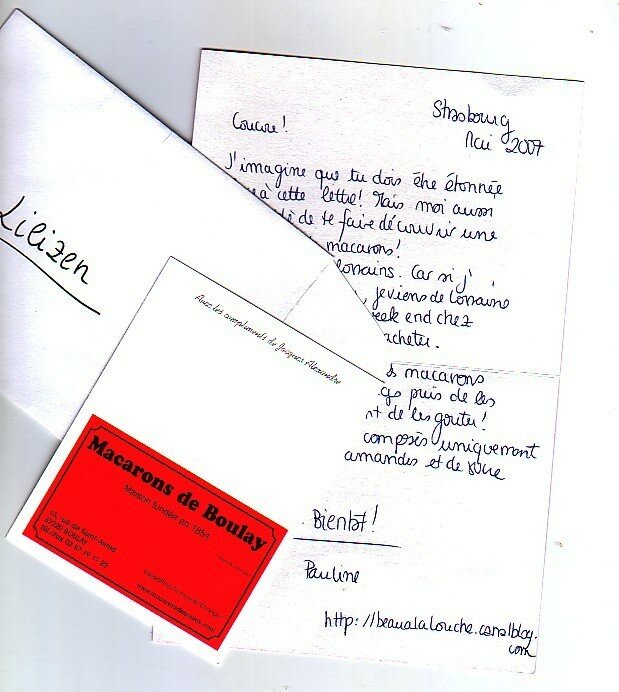 Strasbourg
Mai 2007
Coucou!
J'imagine que tu dois être étonnée
à cette lettre! Mais moi aussi
de te faire découvrir une
macarons!
lorrains. Car si j'
, je viens de Lorraine
eek end chez
acheter.
s macarons
puis de les
nt de les gouter!
composés uniquement
amandes et de sucre
. Bientot!
Pauline
http://beaualalouche.canalblog.
com
Lilizen
Avec les compliments de Jacques Alexandre
Macarons de Boulay
Maison fondée en 1854
13, rue de Saint-Avold
57220 BOULAY